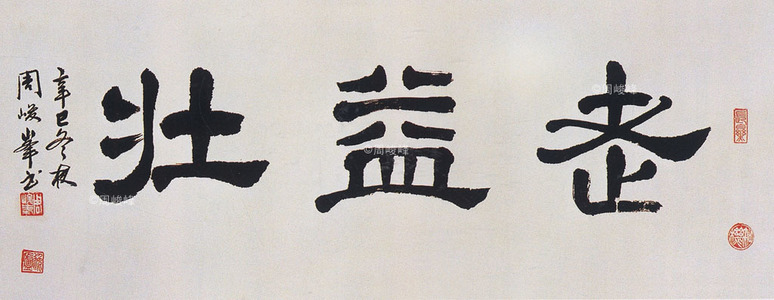 老益壮
辛巳冬夜
周峻峯书
©周峻峰
©周峻峰
©周峻峰